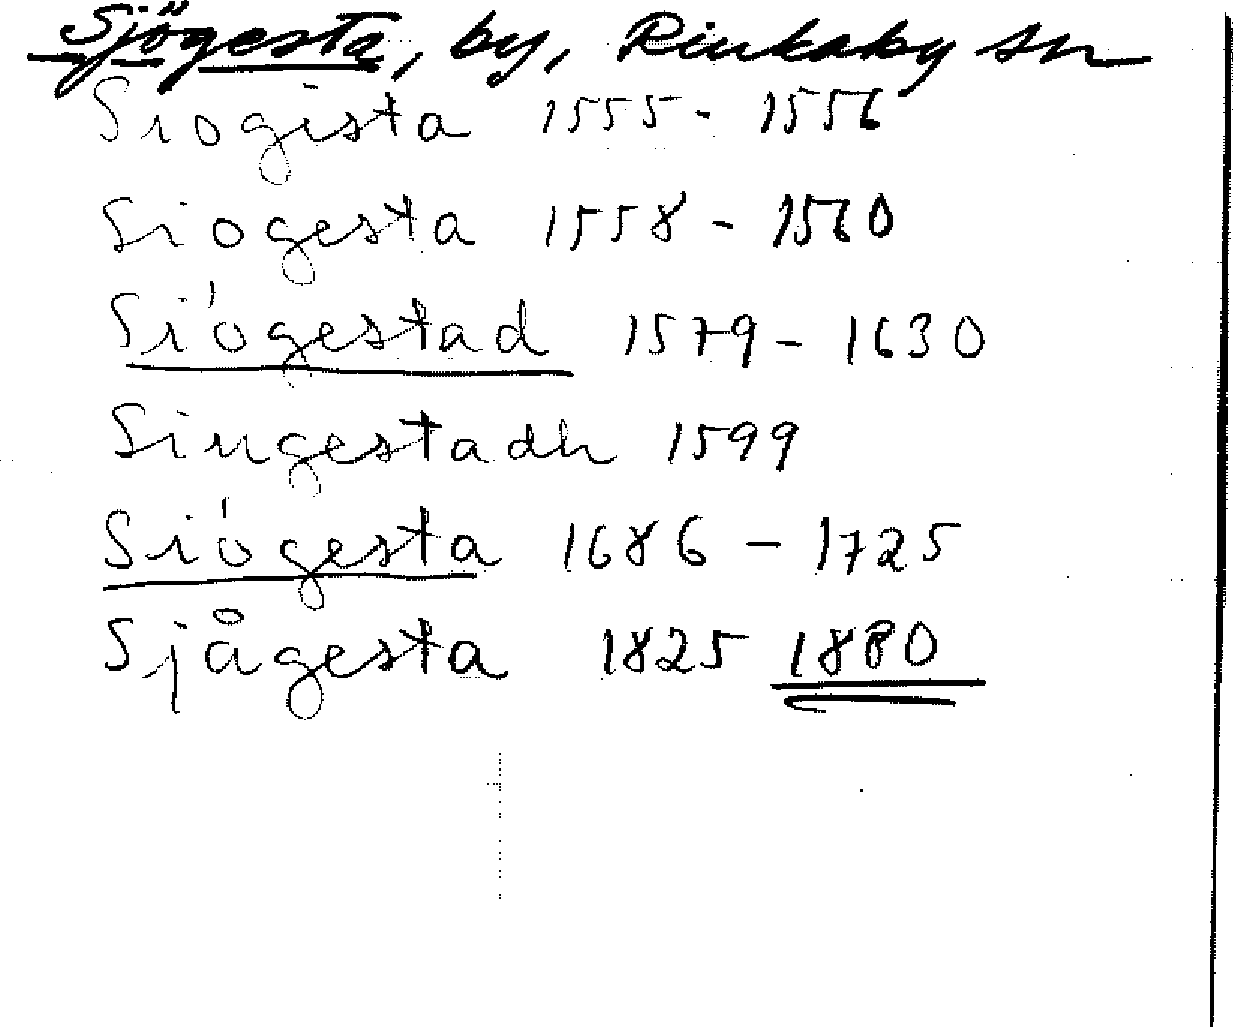 Sjögesta, by, Rinkaby sn
Siogista 1555 - 1556
Siogesta 1558 - 1560
Siógestad 1579 - 1630
Siugestadh 1599
Siógesta 1686 - 1725
Sjågesta 1825 1880